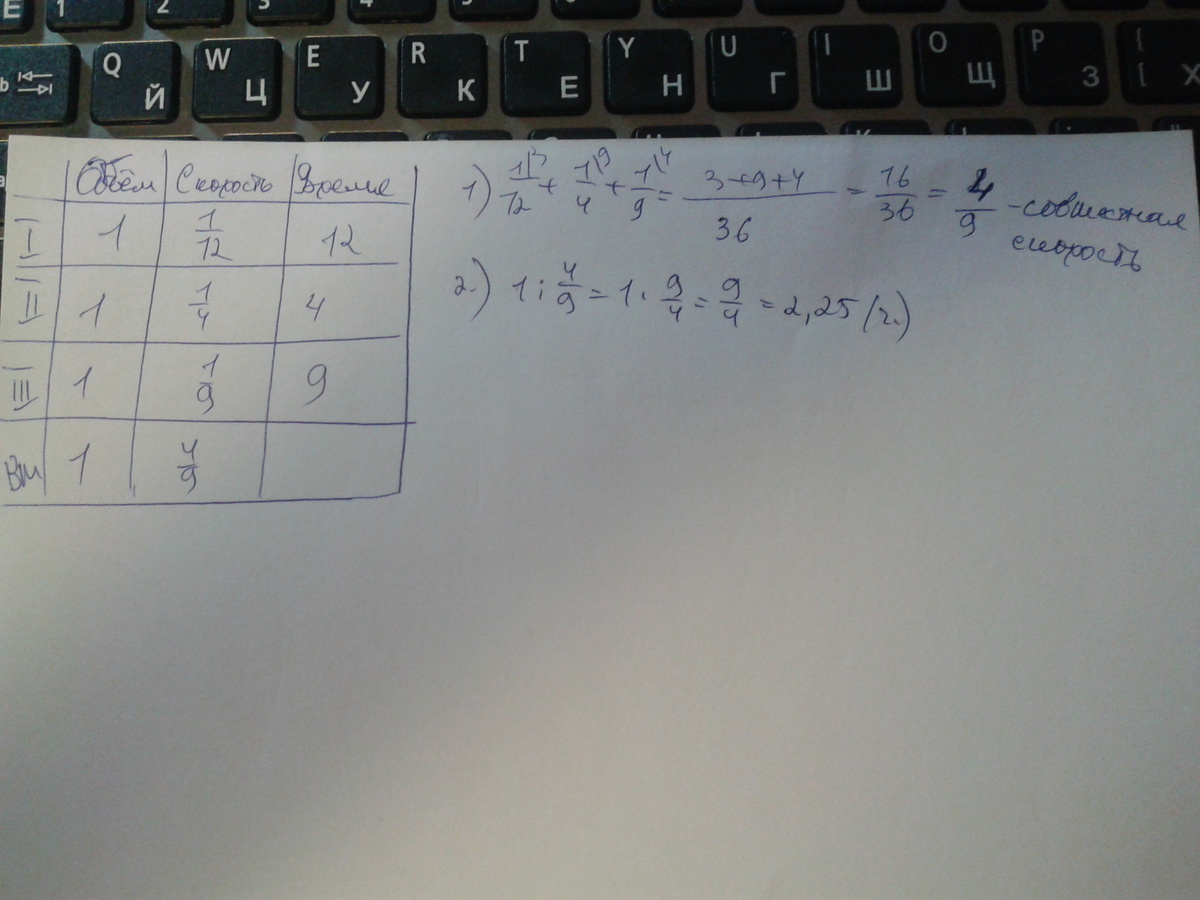 E 1 2 3 4 5
b Q Й W Ц E У R К T Е Y Н U Г I Ш O Щ P З { [ Х
Объём Скорость Время
I 1 1/12 12
II 1 1/4 4
III 1 1/9 9
Вм 1 4/9
1) 1\3/12 + 1\9/4 + 1\4/9 = 3+9+4/36 = 16/36 = 4/9 - совместная
скорость
2.) 1 : 4/9 = 1 · 9/4 = 9/4 = 2,25 (ч.)